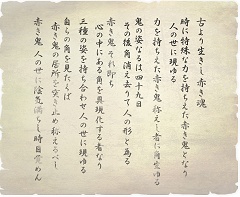 古より生きし赤き魂
時に特殊な力を持ちえた赤き鬼となり
人の世に現ゆる
力を持ちえた赤き鬼称えし者に角宣ゆる
鬼の姿なるは四十九日
その後角消え去って人の形と為る
赤き鬼それ即ち
心の中にある角を具現化する者なり
三種の姿を持ち合わせ人の世に現ゆる
自らの角を見たくば
赤き鬼の居所を突き止め称えるべし
赤き鬼人の世に陰気満ちし時目覚めん